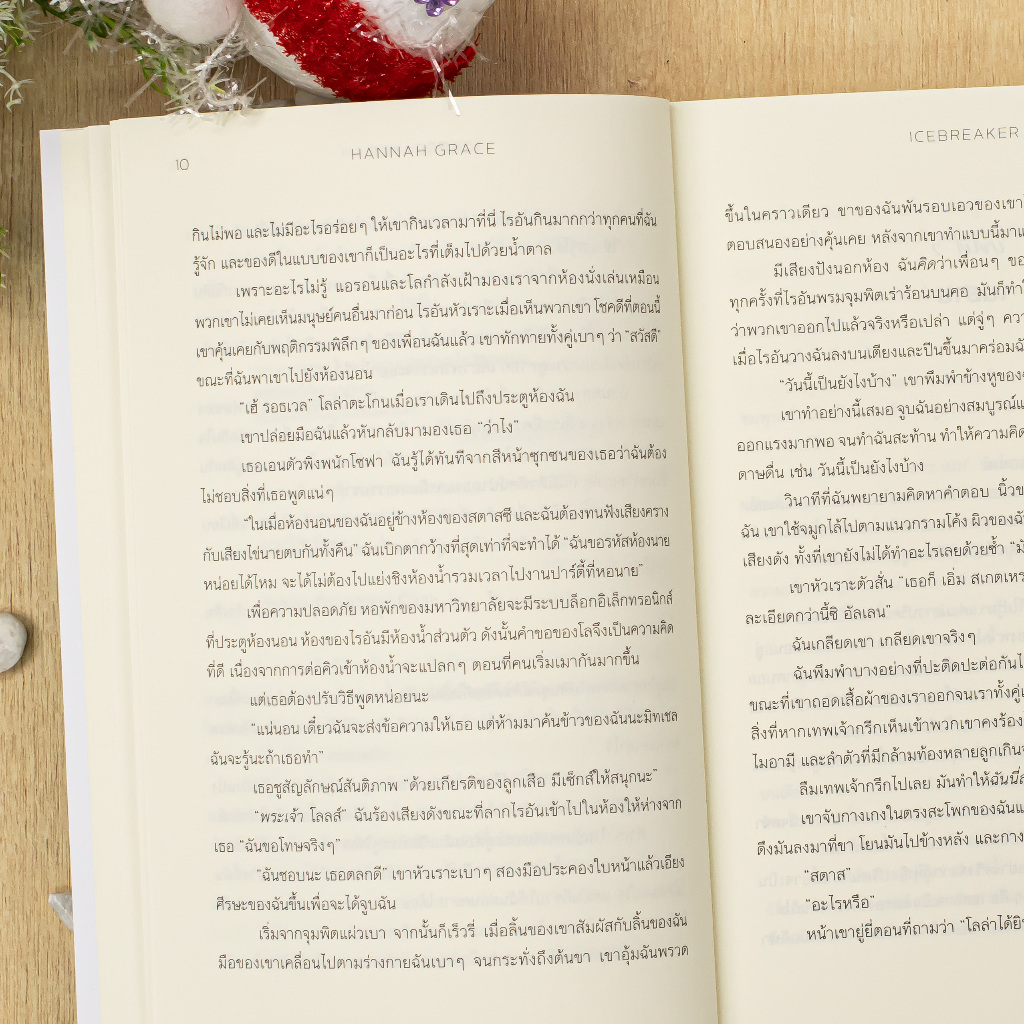 10
HANNAH GRACE
กินไม่พอ และไม่มีอะไรอร่อยๆ ให้เขากินเวลามาที่นี่ ไรอันกินมากกว่าทุกคนที่ฉัน
รู้จัก และของดีในแบบของเขาก็เป็นอะไรที่เต็มไปด้วยน้ำตาล
เพราะอะไรไม่รู้ แอรอนและโลกำลังเฝ้ามองเราจากห้องนั่งเล่นเหมือน
พวกเขาไม่เคยเห็นมนุษย์คนอื่นมาก่อน ไรอันหัวเราะเมื่อเห็นพวกเขา โชคดีที่ตอนนี้
เขาคุ้นเคยกับพฤติกรรมพิลึกๆ ของเพื่อนฉันแล้ว เขาทักทายทั้งคู่เบาๆ ว่า “สวัสดี”
ขณะที่ฉันพาเขาไปยังห้องนอน
“เฮ้ รอธเวล” โลล่าตะโกนเมื่อเราเดินไปถึงประตูห้องฉัน
เขาปล่อยมือฉันแล้วหันกลับมามองเธอ “ว่าไง”
เธอเอนตัวพิงพนักโซฟา ฉันรู้ได้ทันทีจากสีหน้าซุกซนของเธอว่าฉันต้อง
ไม่ชอบสิ่งที่เธอพูดแน่ๆ
“ในเมื่อห้องนอนของฉันอยู่ข้างห้องของสตาสซี และฉันต้องทนฟังเสียงคราง
กับเสียงไข่นายตบกันทั้งคืน” ฉันเบิกตากว้างที่สุดเท่าที่จะทำได้ “ฉันขอรหัสห้องนาย
หน่อยได้ไหม จะได้ไม่ต้องไปแย่งชิงห้องน้ำรวมเวลาไปงานปาร์ตี้ที่หอนาย”
เพื่อความปลอดภัย หอพักของมหาวิทยาลัยจะมีระบบล็อกอิเล็กทรอนิกส์
ที่ประตูห้องนอน ห้องของไรอันมีห้องน้ำส่วนตัว ดังนั้นคำขอของโลจึงเป็นความคิด
ที่ดี เนื่องจากการต่อคิวเข้าห้องน้ำจะแปลกๆ ตอนที่คนเริ่มเมากันมากขึ้น
แต่เธอต้องปรับวิธีพูดหน่อยนะ
“แน่นอน เดี๋ยวฉันจะส่งข้อความให้เธอ แต่ห้ามมาค้นข้าวของฉันนะมิทเชล
ฉันจะรู้นะถ้าเธอทำ”
เธอชูสัญลักษณ์สันติภาพ “ด้วยเกียรติของลูกเสือ มีเซ็กส์ให้สนุกนะ”
“พระเจ้า โลลส์” ฉันร้องเสียงดังขณะที่ลากไรอันเข้าไปในห้องให้ห่างจาก
เธอ “ฉันขอโทษจริงๆ”
“ฉันชอบนะ เธอตลกดี” เขาหัวเราะเบาๆ สองมือประคองใบหน้าแล้วเอียง
ศีรษะของฉันขึ้นเพื่อจะได้จูบฉัน
เริ่มจากจุมพิตแผ่วเบา จากนั้นก็เร็วรี่ เมื่อลิ้นของเขาสัมผัสกับลิ้นของฉัน
มือของเขาเคลื่อนไปตามร่างกายฉันเบาๆ จนกระทั่งถึงต้นขา เขาอุ้มฉันพรวด
ICEBREAKER
ขึ้นในคราวเดียว ขาของฉันพันรอบเอวของเขา
ตอบสนองอย่างคุ้นเคย หลังจากเขาทำแบบนี้มา
มีเสียงปังนอกห้อง ฉันคิดว่าเพื่อนๆ
ทุกครั้งที่ไรอันพรมจุมพิตเร่าร้อนบนคอ มันก็
ว่าพวกเขาออกไปแล้วจริงหรือเปล่า แต่จู่ๆ
เมื่อไรอันวางฉันลงบนเตียงและปีนขึ้นมาคร่อม
“วันนี้เป็นยังไงบ้าง” เขาพึมพำข้างหูของ
เขาทำอย่างนี้เสมอ จูบฉันอย่างสมบูรณ์
ออกแรงมากพอ จนทำฉันสะท้าน ทำให้ความคิด
ดาษดื่น เช่น วันนี้เป็นยังไงบ้าง
วินาทีที่ฉันพยายามคิดหาคำตอบ นิ้ว
ฉัน เขาใช้จมูกไล้ไปตามแนวกรามโค้ง ผิวของ
เสียงดัง ทั้งที่เขายังไม่ได้ทำอะไรเลยด้วยซ้ำ
เขาหัวเราะตัวสั่น “เธอก็ เอิ่ม สเกต
ละเอียดกว่านี้ซิ อัลเลน”
ฉันเกลียดเขา เกลียดเขาจริงๆ
ฉันพึมพำบางอย่างที่ปะติดปะต่อกัน
ขณะที่เขาถอดเสื้อผ้าของเราออกจนเราทั้งคู่
สิ่งที่หากเทพเจ้ากรีกเห็นเข้าพวกเขาคงร้อง
ไมอามี และลำตัวที่มีกล้ามท้องหลายลูกเกิน
ลืมเทพเจ้ากรีกไปเลย มันทำให้ฉัน
เขาจับกางเกงในตรงสะโพกของฉัน
ดึงมันลงมาที่ขา โยนมันไปข้างหลัง และกาง
“สตาส”
“อะไรหรือ”
หน้าเขายู่ยี่ตอนที่ถามว่า “โลล่าได้